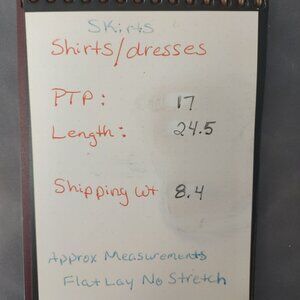 Skirts
Shirts/dresses
PTP: 17
Length: 24.5
Shipping wt 8.4
Approx Measurements
Flat Lay No Stretch